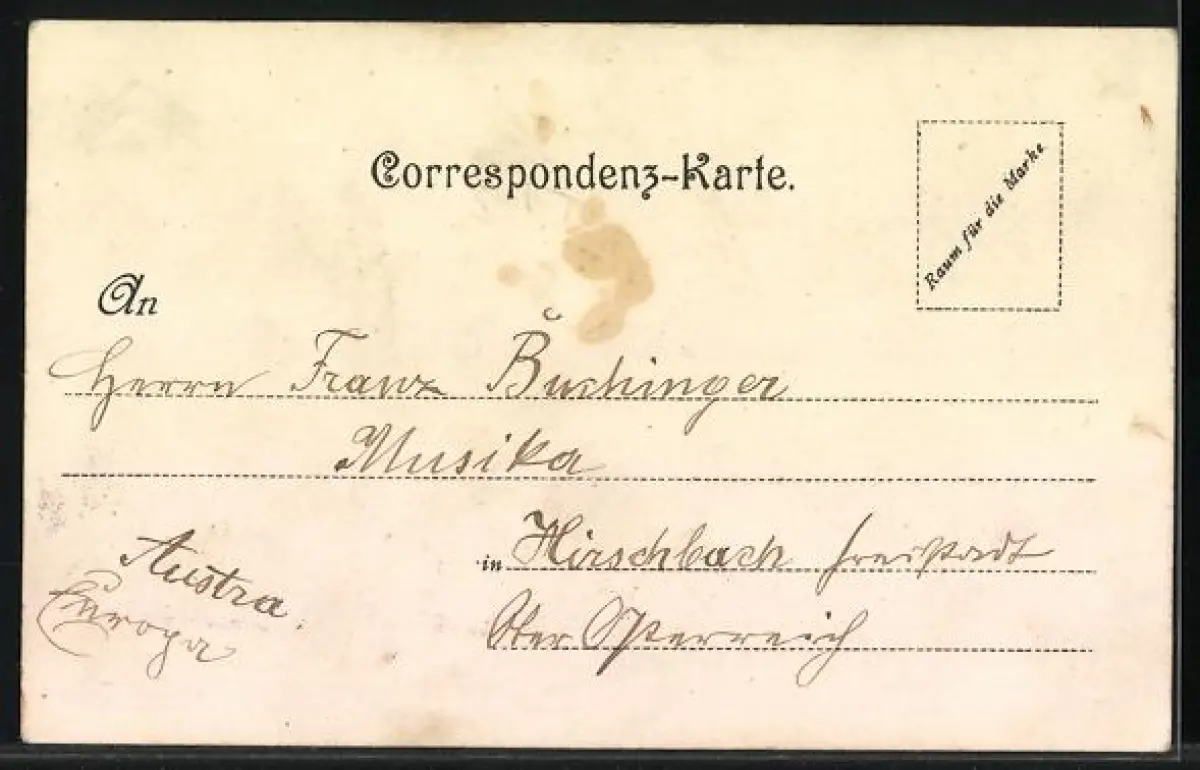 Correspondenz-Karte.
Raum für die Marke
An
Herrn Franz Buchinger
Musika
in Hirschbach Freistadt
Ober Österreich
Austra
Europa